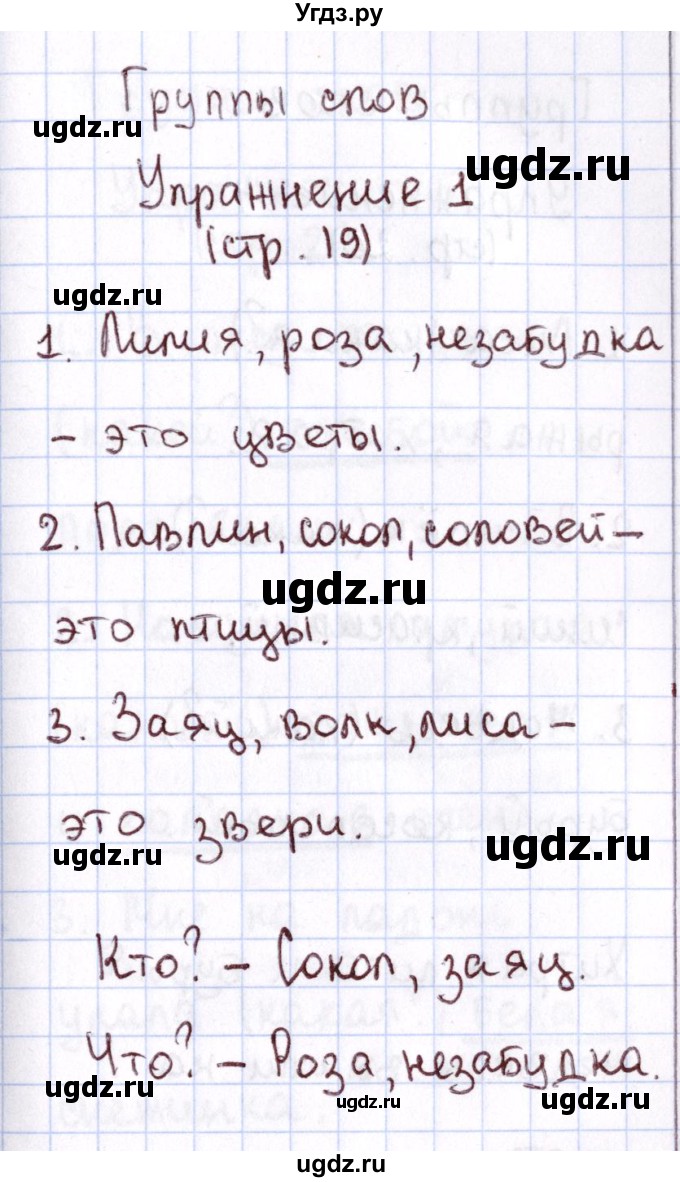 Угдз.ру
Группы слов
ugdz.ru
ugdz.ru
Упражнение 1
(стр. 19)
ugdz.ru
1. Лилия, роза, незабудка
- это цветы.
ugdz.ru
2. Павлин, сокол, соловей -
ugdz.ru
это птицы.
3. Заяц, волк, лиса -
это звери.
ugdz.ru
ugdz.ru
Кто? - Сокол, заяц.
Что? - Роза, незабудка.
ugdz.ru
ugdz.ru
ugdz.ru
ugdz.ru